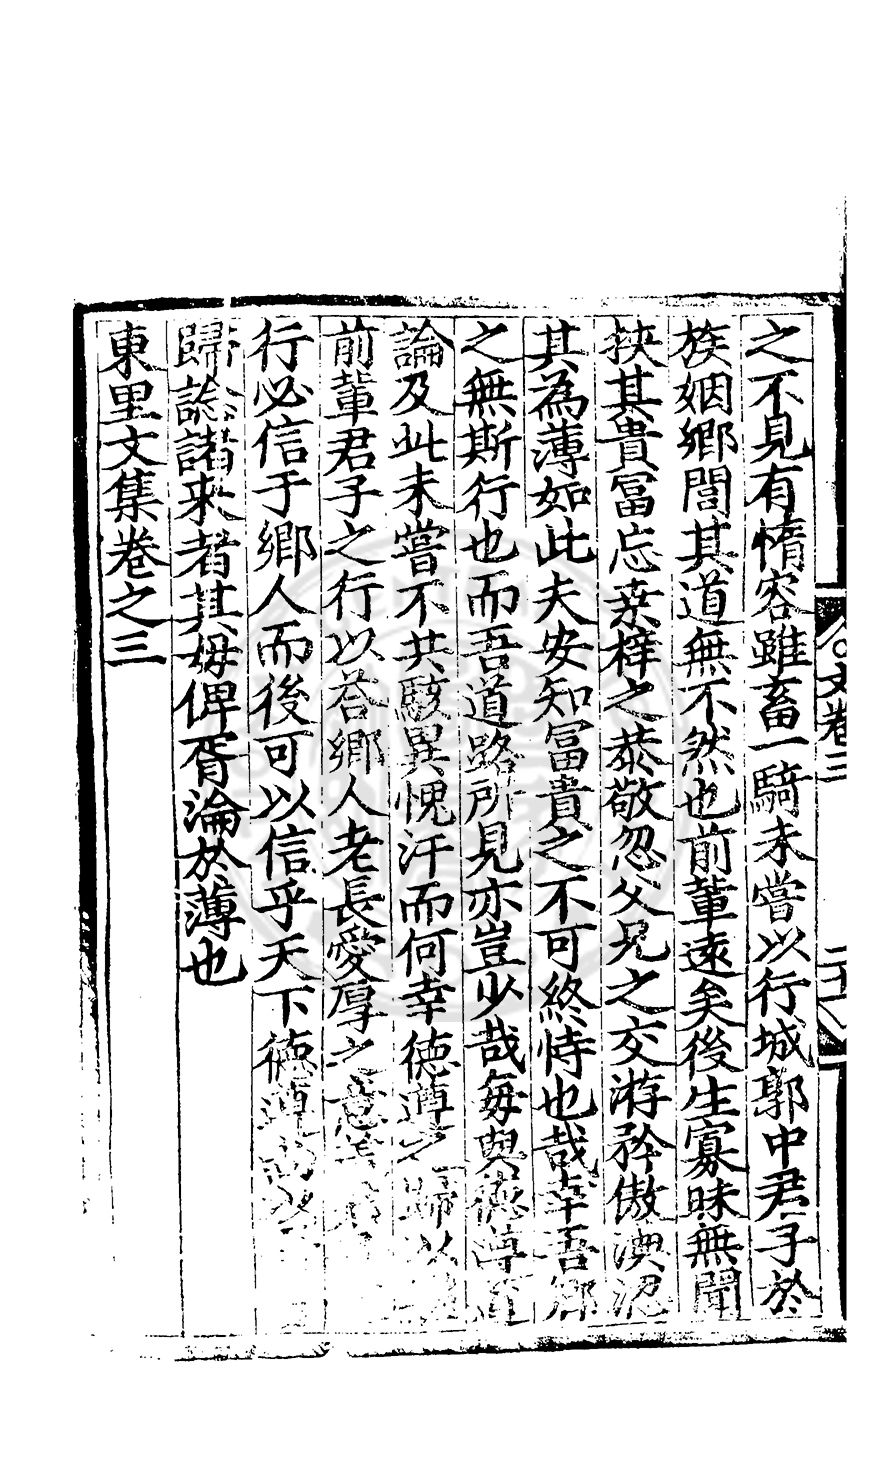 之不見有惰容雖畜一騎未嘗以行城郭中君子於
族姻鄉閭其道無不然也前輩遠矣後生寡昧無聞
挾其貴冨忘桒梓之恭敬忽父兄之交游矜傲淟涊
其為薄如此夫安知冨貴之不可終恃也哉幸吾鄉
之無斯行也而吾道路所見亦豈少哉每與德遵道
論及此未嘗不共駭異愧汗而何幸德遵之歸以
前輩君子之行以荅鄉人老長愛厚之意
行必信于鄉人而後可以信乎天下德遵
歸諗諸來者其毋俾胥淪於薄也
東里文集卷之三
文卷三